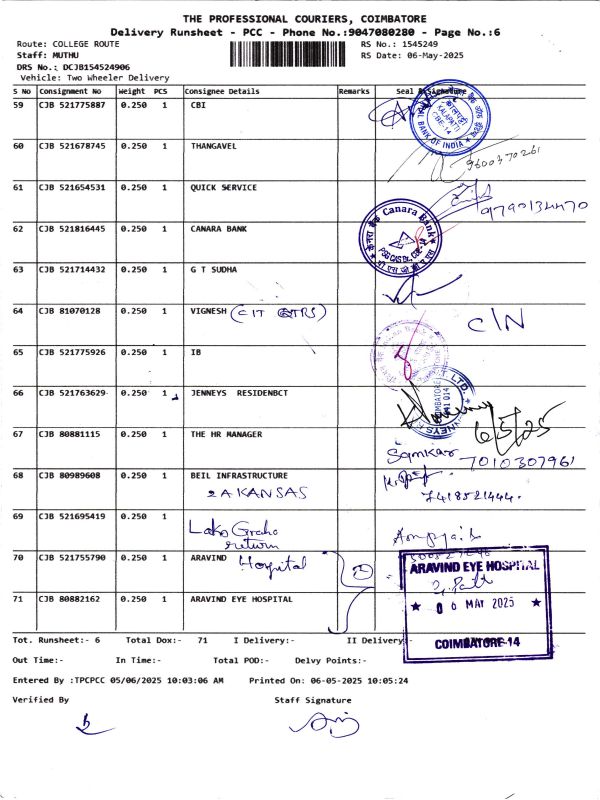 THE PROFESSIONAL COURIERS, COIMBATORE
Delivery Runsheet - PCC - Phone No.:9047080280 - Page No.:6
Route: COLLEGE ROUTE RS No.: 1545249
Staff: MUTHU RS Date: 06-May-2025
DRS No.: DCJB154524906
Vehicle: Two Wheeler Delivery
S No Consignment No Weight PCS Consignee Details Remarks Seal & Signature
59 CJB 521775887 0.250 1 CBI
BANK OF INDIA
60 CJB 521678745 0.250 1 THANGAVEL
9600370261
61 CJB 521654531 0.250 1 QUICK SERVICE
9790134470
62 CJB 521816445 0.250 1 CANARA BANK
Canara Bank
63 CJB 521714432 0.250 1 G T SUDHA
64 CJB 81070128 0.250 1 VIGNESH (CIT QTRS) C/N
65 CJB 521775926 0.250 1 IB
66 CJB 521763629 0.250 1 JENNEYS RESIDENBCT
6/5/25
67 CJB 80881115 0.250 1 THE HR MANAGER
Samkar
7010307961
68 CJB 80989608 0.250 1 BEIL INFRASTRUCTURE
2 ARKANSAS
7418521444.
69 CJB 521695419 0.250 1
return
70 CJB 521755790 0.250 1 ARAVIND Hospital 2
71 CJB 80882162 0.250 1 ARAVIND EYE HOSPITAL
ARAVIND EYE HOSPITAL
★ 06 MAY 2025 ★
COIMBATORE-14
Tot. Runsheet:- 6 Total Dox:- 71 I Delivery:- II Delivery:-
Out Time:- In Time:- Total POD:- Delvy Points:-
Entered By :TPCPCC 05/06/2025 10:03:06 AM Printed On: 06-05-2025 10:05:24
Verified By Staff Signature